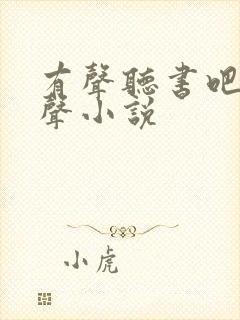 有聲聽書吧
聲小説
小虎